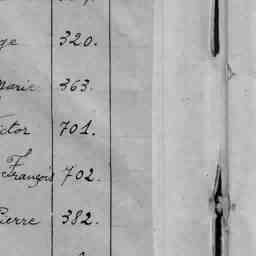 ge 320.
Marie 363.
ictor 701.
François 702.
Pierre 382.